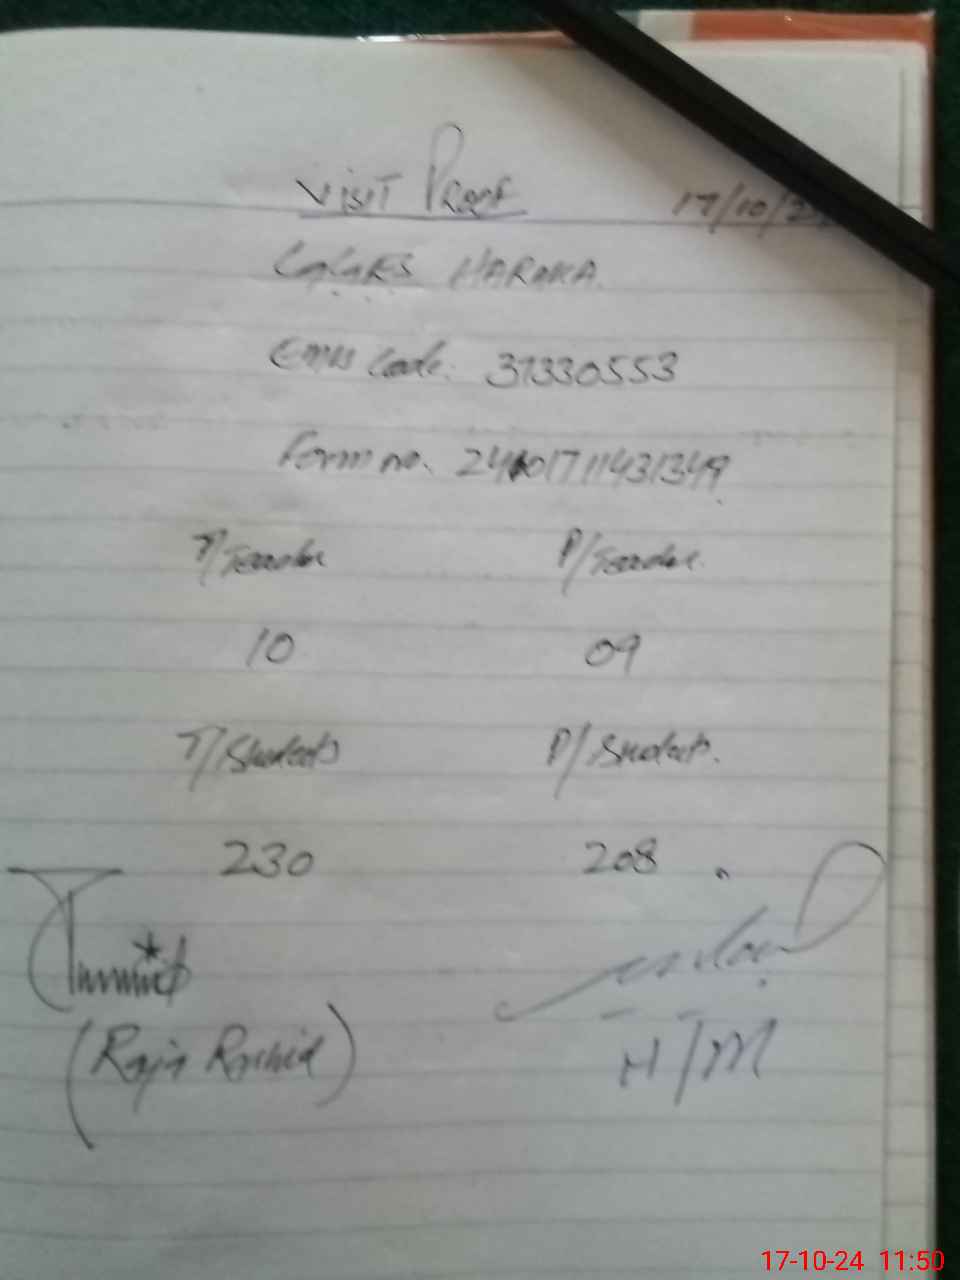 Visit Proof 17/10/2
HARAKA.
Emis Code: 37330553
Form no. 24101711431349
T/Teacher P/Teacher.
10 09
T/Students P/Students.
230 208
(Raja Rashid)
H/M
17-10-24 11:50